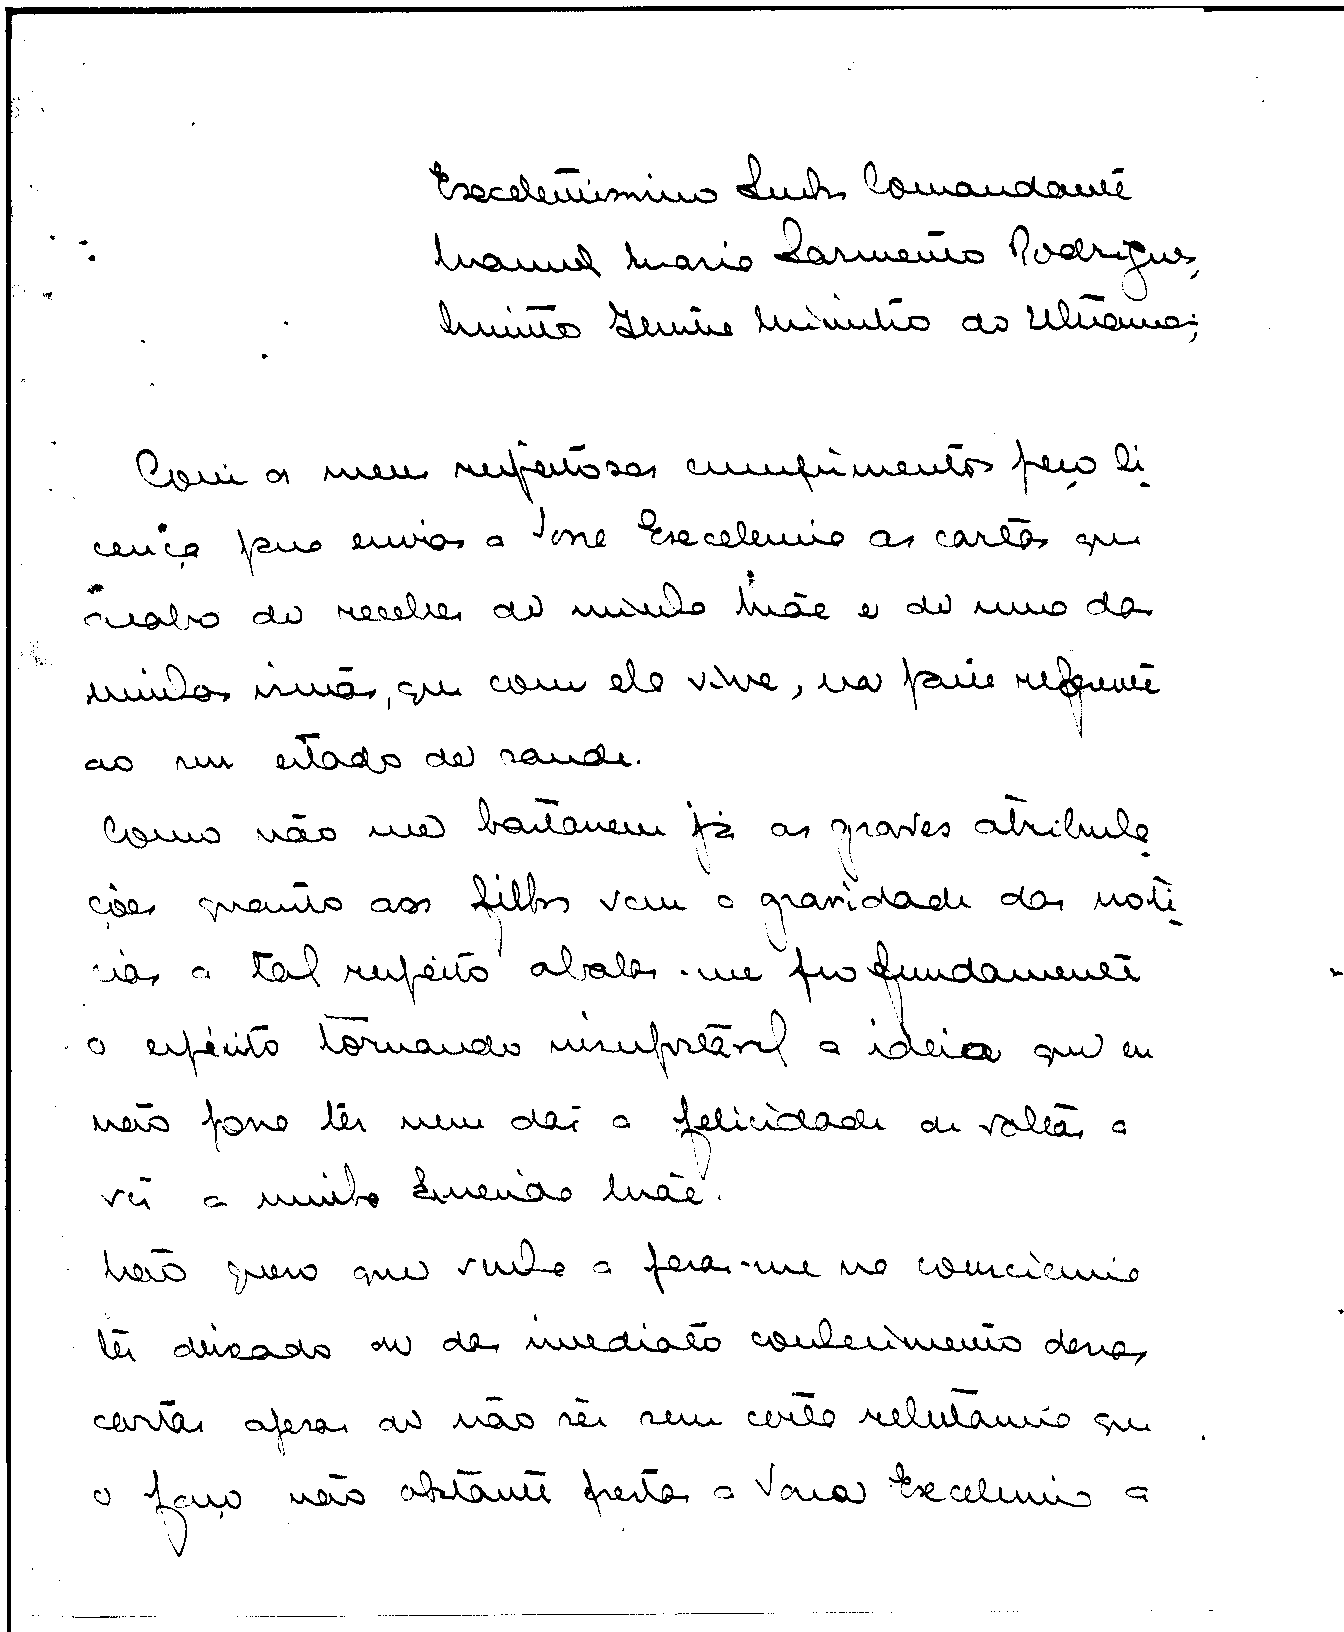 Excelentissimo Senhor Comandante
Manuel Maria Sarmento Rodrigues,
Muito Ilustre Ministro do Ultramar;
Com os meus respeitosos cumprimentos peço li
cença para enviar a Vossa Excelencia as cartas que
acabo de receber de minha Mãe e de uma das
minhas irmãs, que com ela vive, na parte referente
ao seu estado de saude.
Como não me bastassem já as graves atribula
ções quanto aos filhos vem a gravidade das noti
cias a tal respeito abalar-me profundamente
o espirito tornando insuportável a ideia que eu
não possa ter nem dar a felicidade de voltar a
ver a minha querida Mãe.
Não quero que venha a pesar-me na consciencia
ter deixado de dar imediato conhecimento dessas
cartas apesar de não ser sem certa relutancia que
o faço não obstante prestar a Vossa Excelencia a